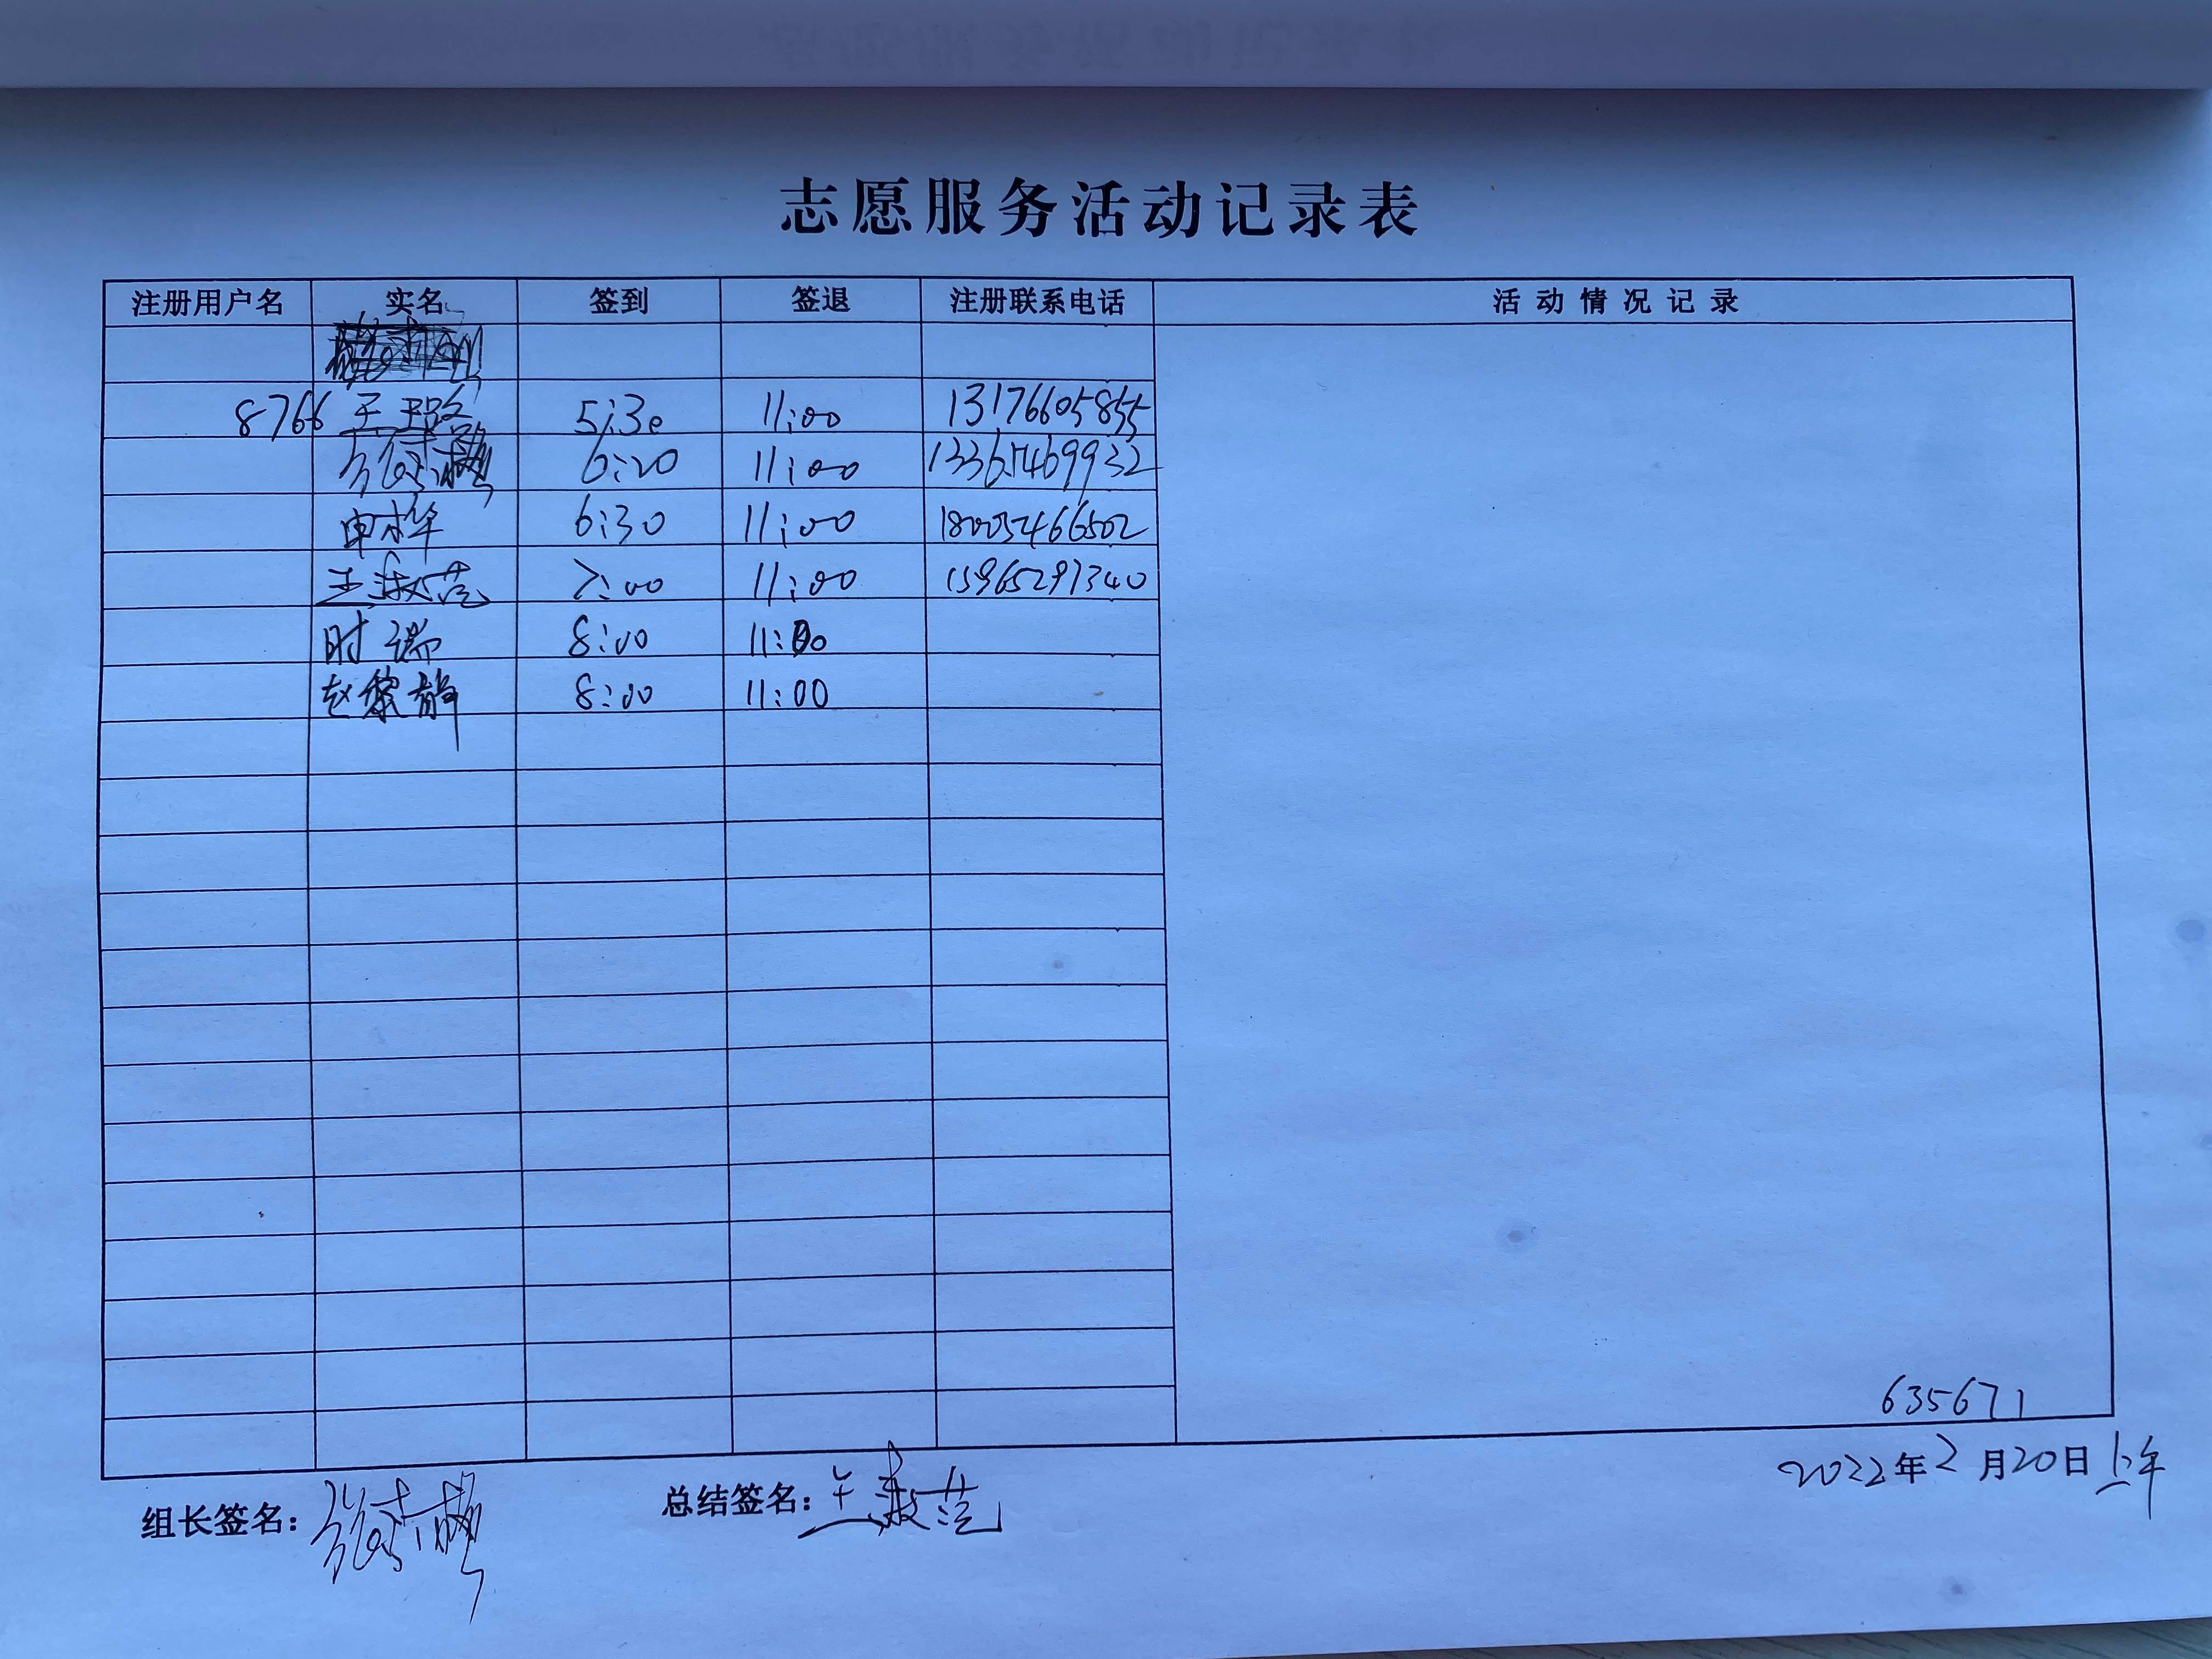 志愿服务活动记录表
注册用户名 实名 签到 签退 注册联系电话 活动情况记录
8766 王璐 5:30 11:00 13176605855
6:20 11:00 13365469932
申木华 6:30 11:00 18005466502
王淑范 7:00 11:00 15965297340
时瑞 8:00 11:00
赵黎静 8:00 11:00
635671
2022年2月20日上午
组长签名: 总结签名:王淑范